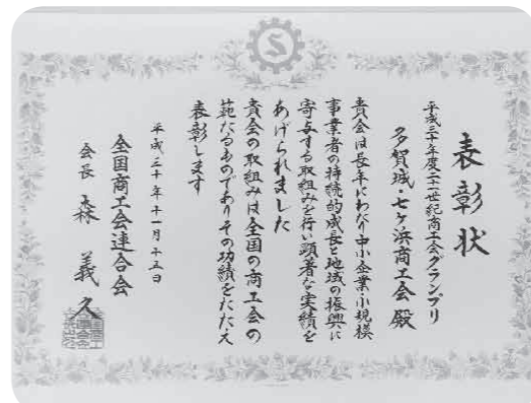 表彰状
平成三十年度二十一世紀商工会グランプリ
多賀城・七ヶ浜商工会殿
貴会は長年にわたり中小企業・小規模
事業者の持続的成長と地域の振興に
寄与する取組みを行い顕著な実績を
あげられました
貴会の取組みは全国の商工会の
範たるものでありその功績をたたえ
表彰します
平成三十年十一月十五日
全国商工会連合会
会長 森 義久